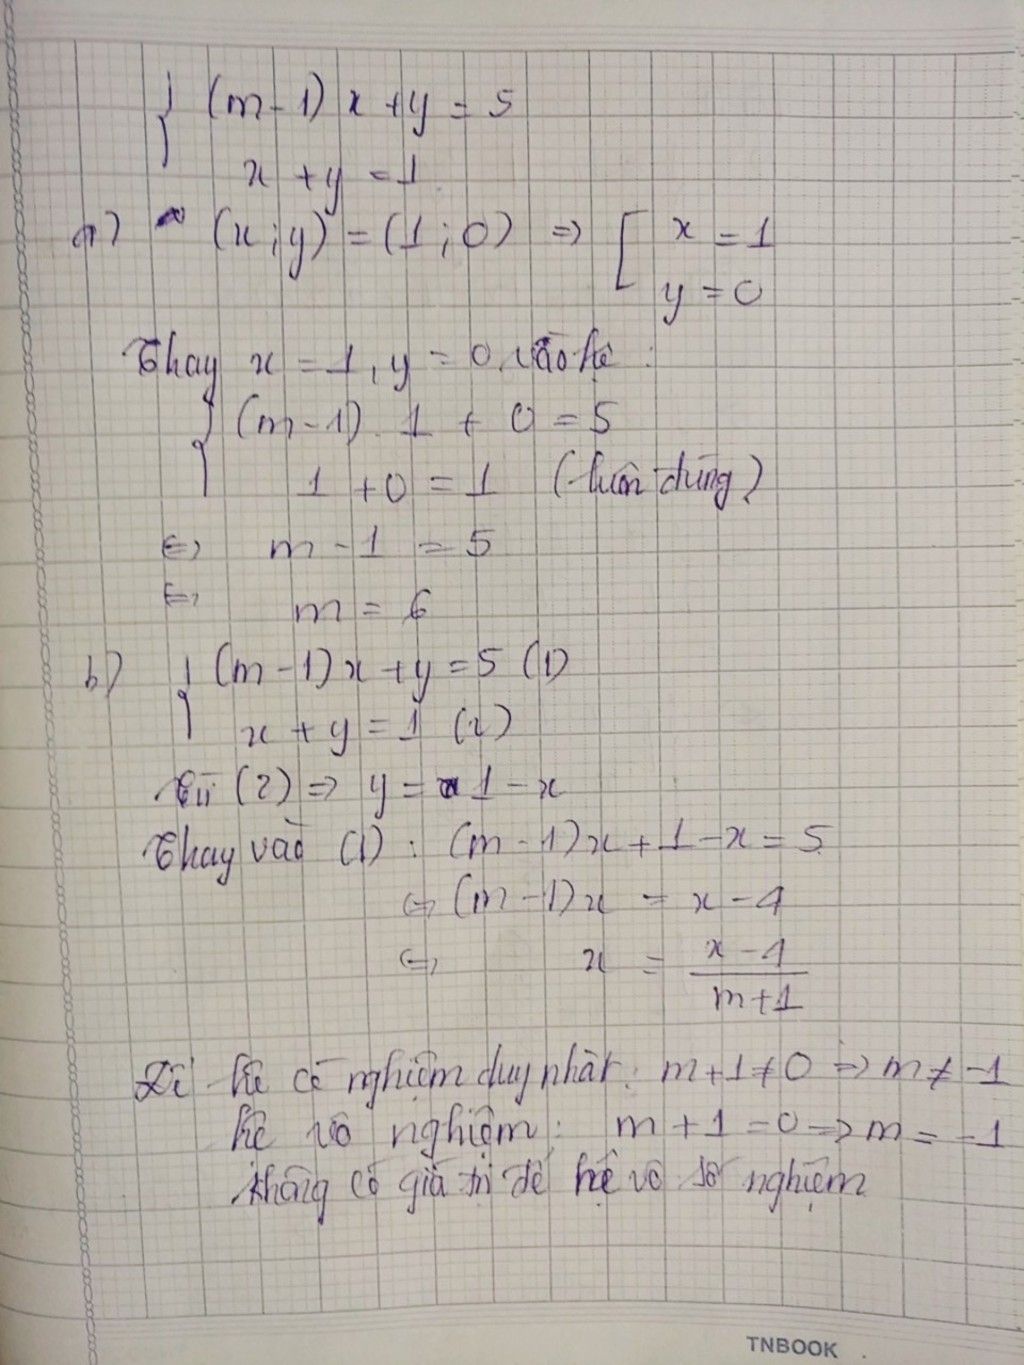 { (m-1)x + y = 5
x + y = 1
a) (x;y) = (1;0) => [ x = 1
y = 0
Thay x = 1, y = 0 vào hệ :
{ (m-1).1 + 0 = 5
1 + 0 = 1 (luôn đúng)
<=> m - 1 = 5
<=> m = 6
b) { (m-1)x + y = 5 (1)
x + y = 1 (2)
Từ (2) => y = 1 - x
Thay vào (1) : (m-1)x + 1 - x = 5
<=> (m-1)x = x - 4
<=> x = \frac{x-4}{m+1}
Để hệ có nghiệm duy nhất : m+1 ≠ 0 => m ≠ -1
hệ vô nghiệm : m + 1 = 0 => m = -1
không có giá trị để hệ vô số nghiệm
TNBOOK